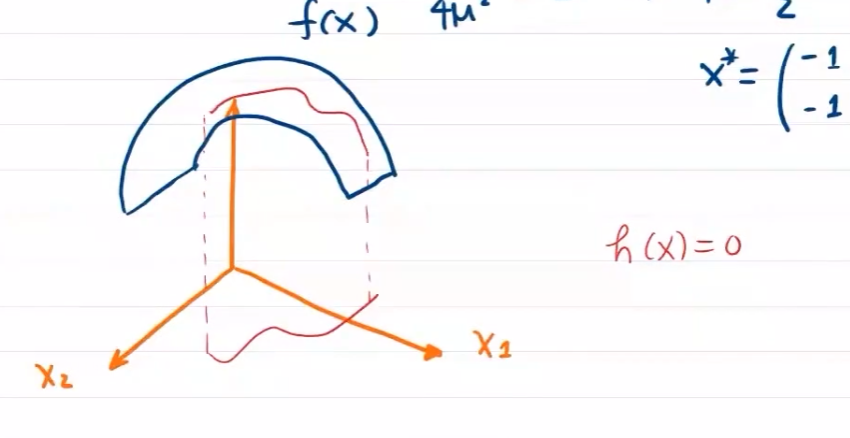 f(x) 4μ² 2
x* = ( -1
-1
h(x) = 0
x₁
x₂